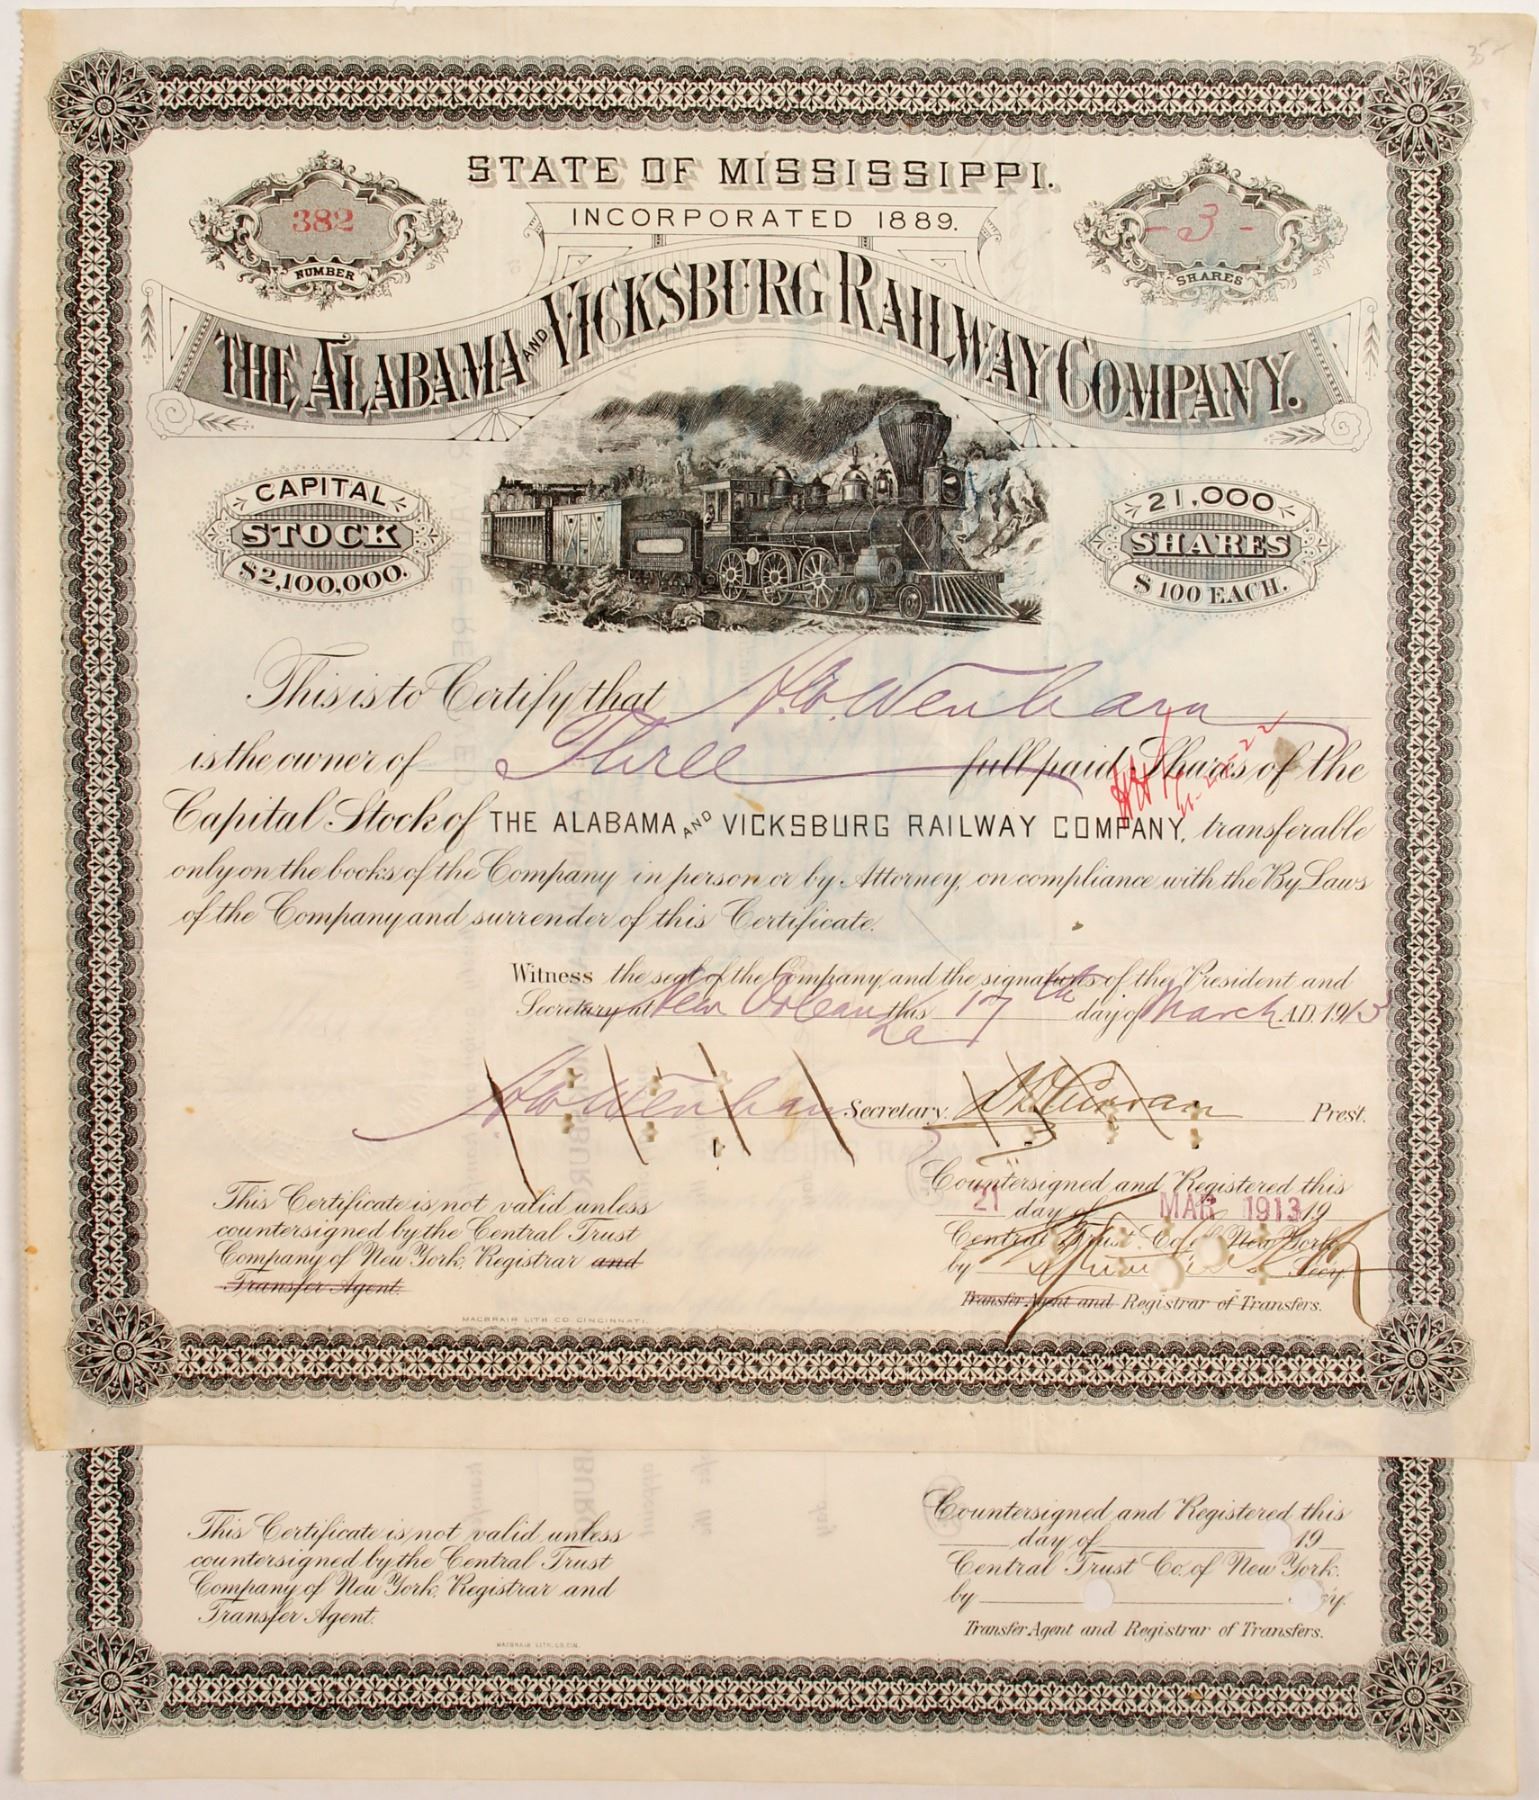 STATE OF MISSISSIPPI.
INCORPORATED 1889.
382
NUMBER
- 3 -
SHARES
THE ALABAMA AND VICKSBURG RAILWAY COMPANY.
CAPITAL
STOCK
$2,100,000.
21,000
SHARES
$100 EACH.
This is to Certify that Wenham
is the owner of Three full paid Shares of the
Capital Stock of THE ALABAMA AND VICKSBURG RAILWAY COMPANY, transferable
only on the books of the Company in person or by Attorney, on compliance with the By Laws
of the Company and surrender of this Certificate.
Witness the seal of the Company and the signatures of the President and
Secretary at New Orleans La this 17th day of March A.D. 1913
Wenham Secretary. Curran Prest.
This Certificate is not valid unless
countersigned by the Central Trust
Company of New York, Registrar and
Transfer Agent.
Countersigned and Registered this
21 day of MAR 1913 19
Central Trust Co. of New York.
by Secy.
Transfer Agent and Registrar of Transfers.
MACBRAIR LITH CO CINCINNATI.
This Certificate is not valid unless
countersigned by the Central Trust
Company of New York, Registrar and
Transfer Agent.
Countersigned and Registered this
day of 19
Central Trust Co. of New York.
by
Transfer Agent and Registrar of Transfers.
MACBRAIR LITH. CO. CIN.